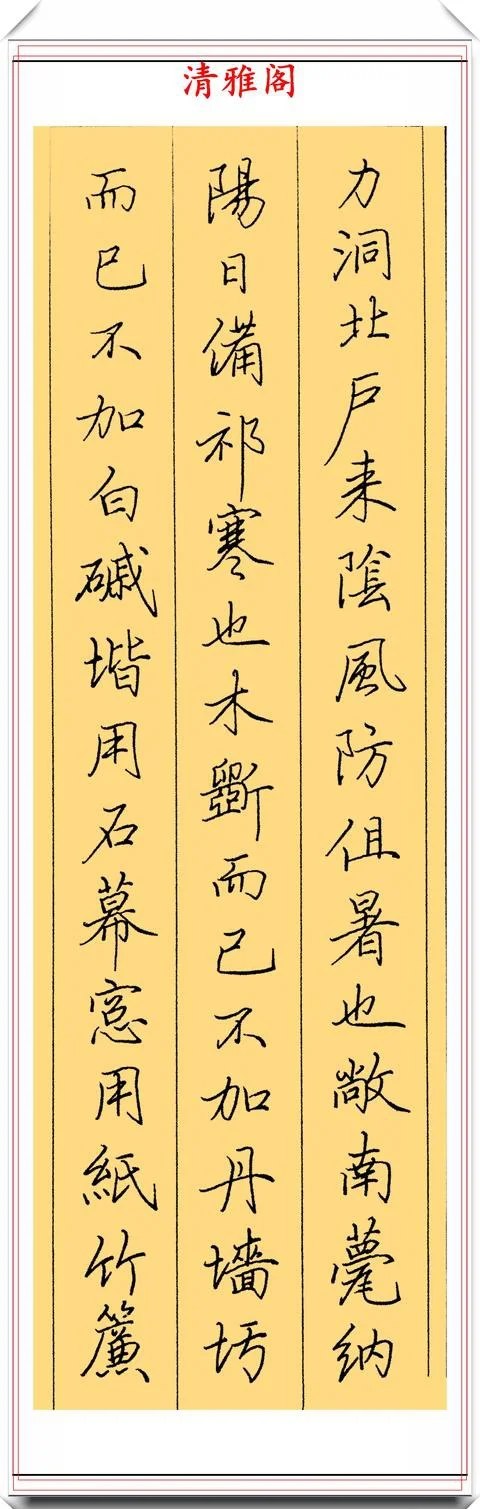 清雅阁
力洞北戶来陰風防徂暑也敞南甍納
陽日備祁寒也木斲而已不加丹墻圬
而已不加白磩堦用石幕窓用紙竹簾